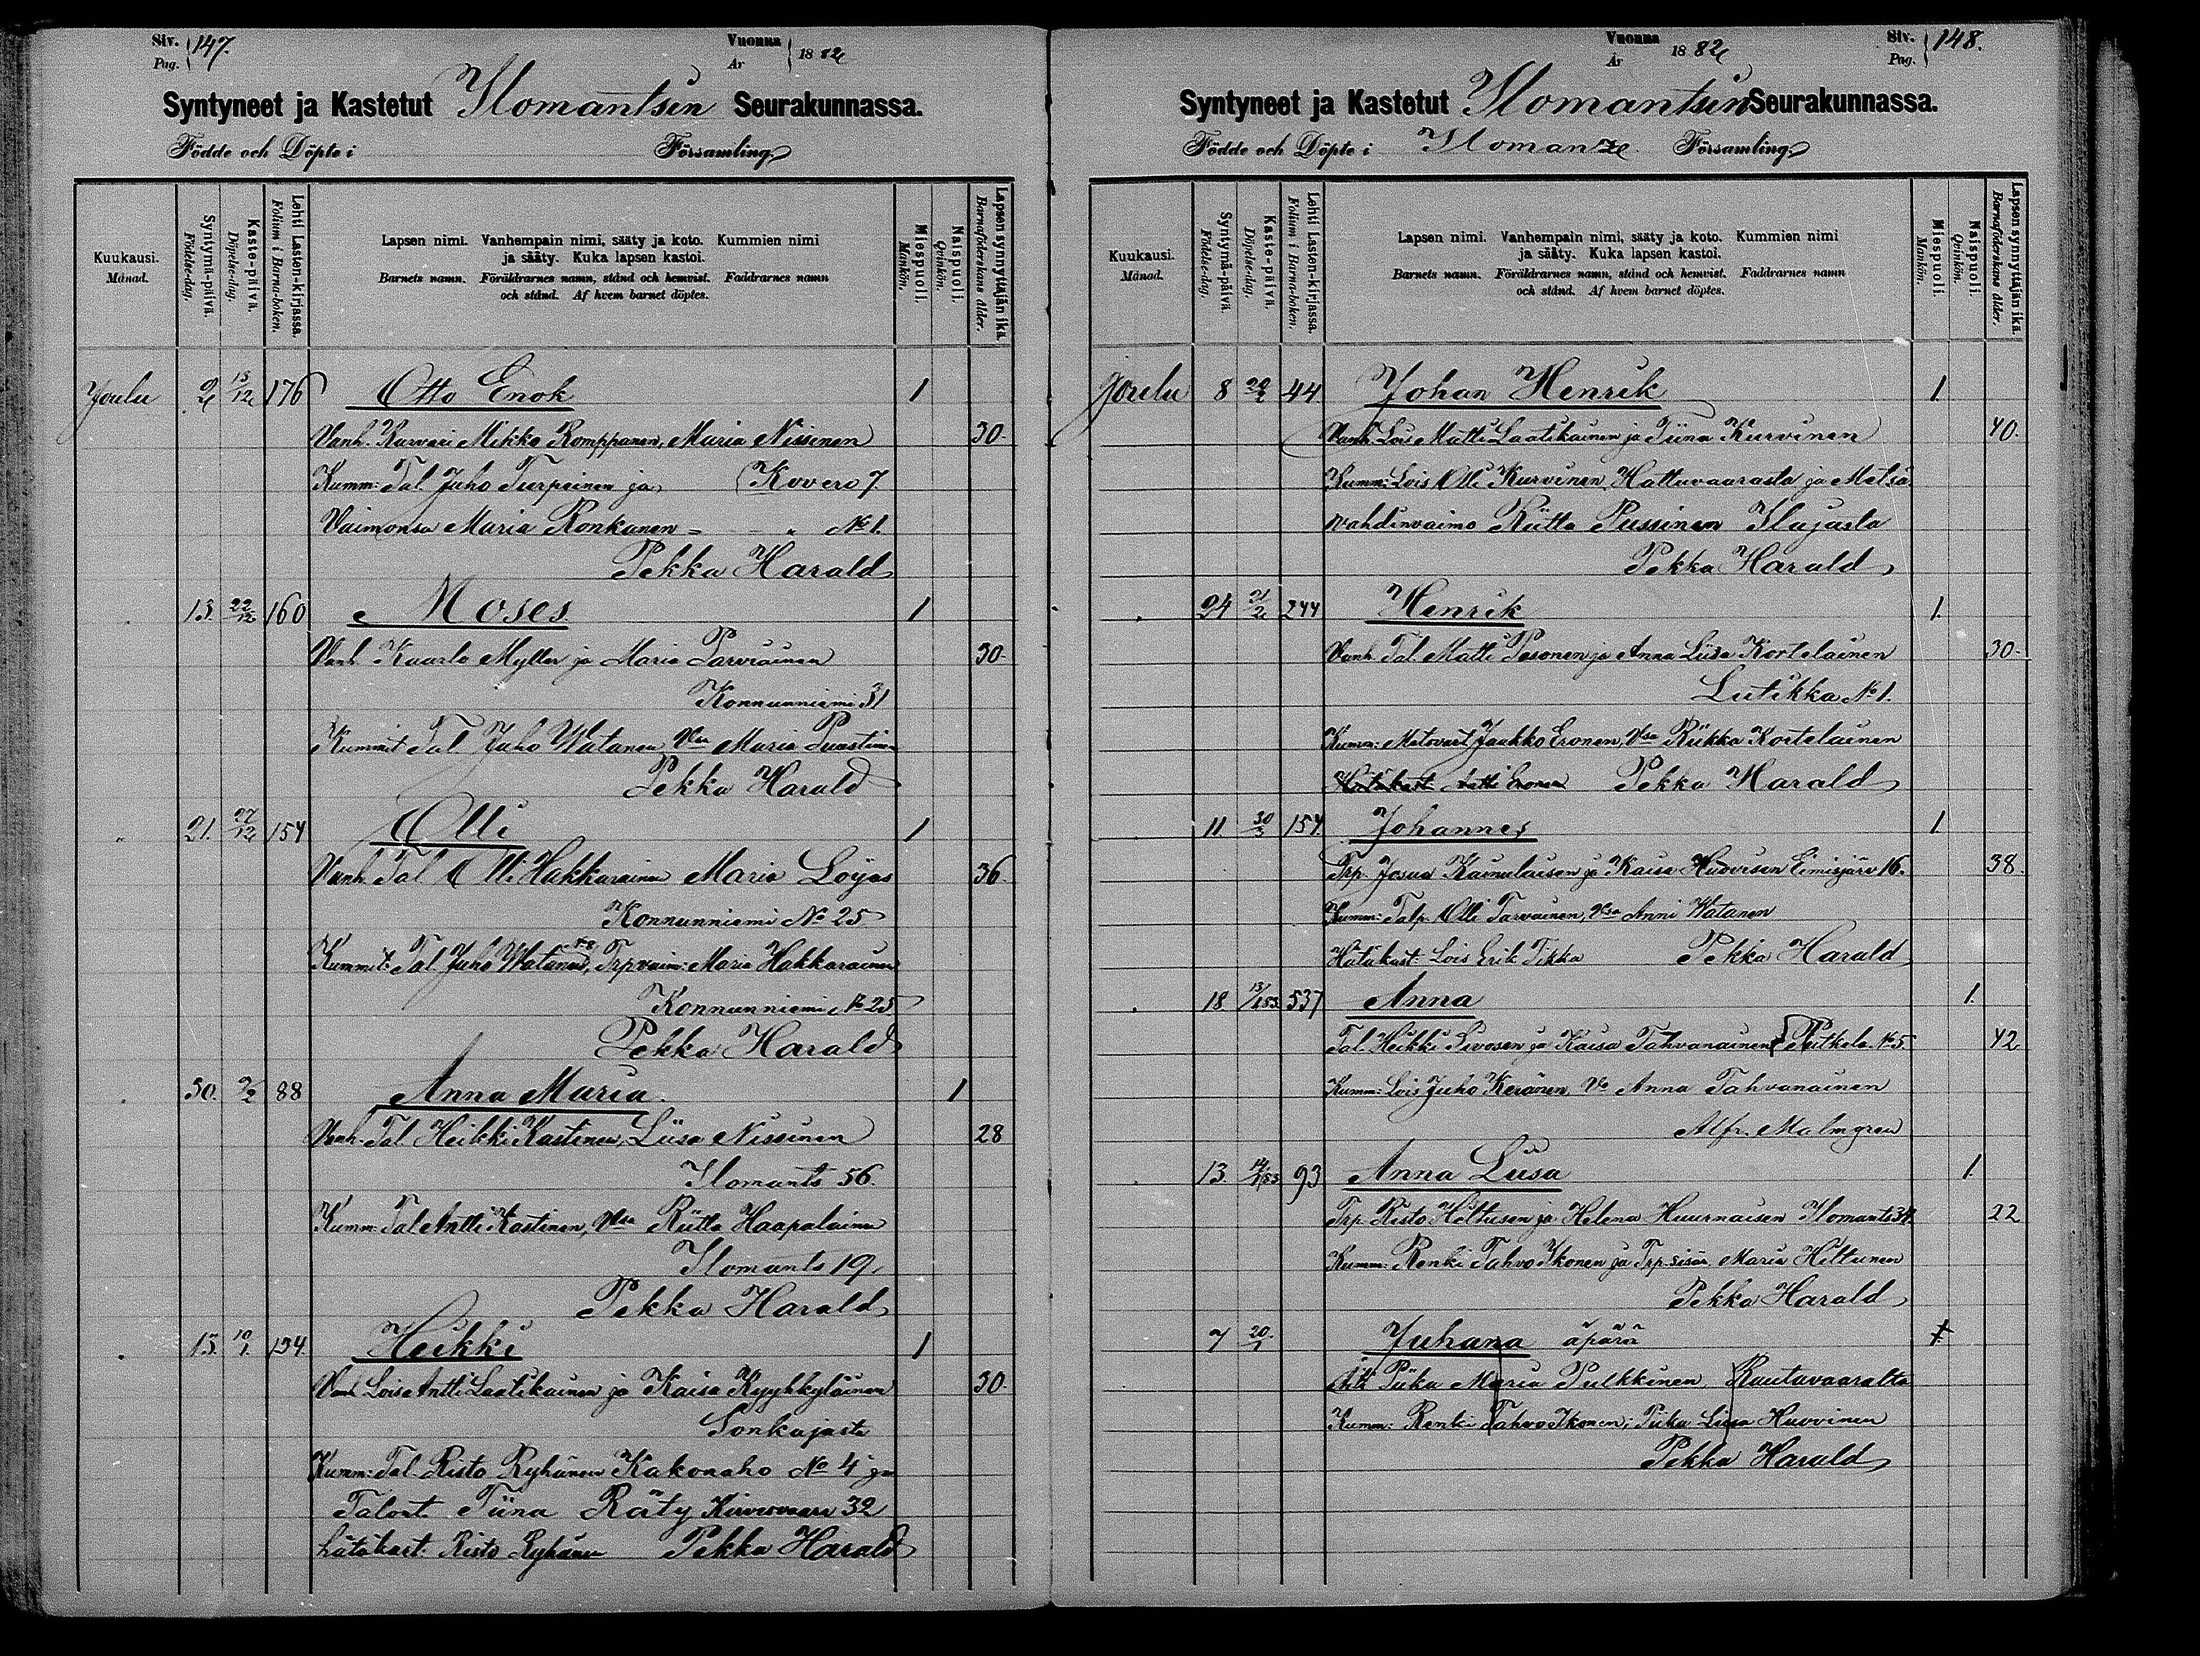 Siv. 147.
Pag.
Vuonna 1882
År
Syntyneet ja Kastetut Ilomantsin Seurakunnassa.
Födde och Döpte i Församling.
Kuukausi.
Månad.
Syntymä-päivä.
Födelse-dag.
Kaste-päivä.
Döpelse-dag.
Lehti Lasten-kirjassa.
Folium i Barna-boken.
Lapsen nimi. Vanhempain nimi, sääty ja koto. Kummien nimi
ja sääty. Kuka lapsen kastoi.
Barnets namn. Föräldrarnes namn, stånd och hemvist. Faddrarnes namn
och stånd. Af hvem barnet döptes.
Miespuoli.
Mankön.
Naispuoli.
Qvinkön.
Lapsen synnyttäjän ikä.
Barnaföderskans ålder.
Joulu 2 13/12 176 Otto Enok 1
Vanh. Kurvari Mikko Romppanen, Maria Nissinen 30.
Kumm: Tal. Juho Turpeinen ja (Kovero 7.
Vaimonsa Maria Ronkanen = „ No 1.
Pekka Harald
„ 13. 22/12 160 Moses 1
Vanh. Kaarlo Myller ja Maria Parviainen 30.
Konnunniemi 31
Kummit Tal. Juho Watanen Vsa Maria Puustinen
Pekka Harald
„ 21. 27/12 154 Olli 1
Vanh. Tal Olli Hakkarainen Maria Löyas 36.
Konnunniemi No 25
Kummit: Tal. Juho Watanen, Trp.vaim: Maria Hakkarainen
Konnunniemi No 25
Pekka Harald
„ 30. 2/2 88 Anna Maria. 1
Vanh. Tal. Heikki Kastinen, Liisa Nissinen 28
Ilomants 56.
Kumm: Tal. Antti Kastinen, Vsa Riitta Haapalainen
Ilomants 19
Pekka Harald
„ 13. 10/1. 194. Heikki 1
Vanh. Lois Antti Laatikainen ja Kaisa Kyyhkyläinen 30.
Sonkajasta
Kumm: Tal. Risto Ryhänen Kakonaho No 4 ja
Talont. Tiina Räty Kirvesvaara 32
hätäkast: Risto Ryhänen Pekka Harald
Vuonna 1882
År
Siv. 148.
Pag.
Syntyneet ja Kastetut Ilomantsin Seurakunnassa.
Födde och Döpte i Ilomants Församling.
Kuukausi.
Månad.
Syntymä-päivä.
Födelse-dag.
Kaste-päivä.
Döpelse-dag.
Lehti Lasten-kirjassa.
Folium i Barna-boken.
Lapsen nimi. Vanhempain nimi, sääty ja koto. Kummien nimi
ja sääty. Kuka lapsen kastoi.
Barnets namn. Föräldrarnes namn, stånd och hemvist. Faddrarnes namn
och stånd. Af hvem barnet döptes.
Miespuoli.
Mankön.
Naispuoli.
Qvinkön.
Lapsen synnyttäjän ikä.
Barnaföderskans ålder.
Joulu 8 44. Johan Henrik 1.
Vanh. Lois Matti Laatikainen ja Tiina Kurvinen 40.
Kumm: Lois Olli Kurvinen, Hattuvaarasta ja Metsä
vahdinvaimo Riitta Pussinen Ilajasta
Pekka Harald
„ 24 244 Henrik 1.
Vanh. Tal. Matti Pesonen ja Anna Liisa Kortelainen 30.
Lutikka No 1.
Kumm: Jaakko Eronen, Vsa Riikka Kortelainen
Hätäkast Antti Eronen Pekka Harald
. 11 30/3 154. Johannes 1.
Trp. Josua Kainulaisen ja Kaisa Huovisen Eimisjärv 16. 38.
Kumm: Talp. Olli Tarvainen, Vsa Anni Watanen
Hätäkast: Lois Erik Tikka Pekka Harald
. 18. 13/1 83. 537 Anna 1.
Tal. Heikki Sivosen ja Kaisa Tahvanainen Putkela No 5. 42
Kumm: Lois Juho Keränen, Vo Anna Tahvanainen
Alfr. Malmgren
. 13. 14/1 83 93 Anna Liisa 1.
Trp. Risto Hiltusen ja Helena Huurnaisen Ilomants 34. 22
Kumm: Renki Tahvo Ikonen ja Trp. sisar Maria Hiltunen
Pekka Harald
7 20/1 Juhana äpärä 1.
Äiti Piika Maria Pulkkinen, Rautavaaralta
Kumm: Renki Tahvo Ikonen; Piika Liisa Huovinen
Pekka Harald